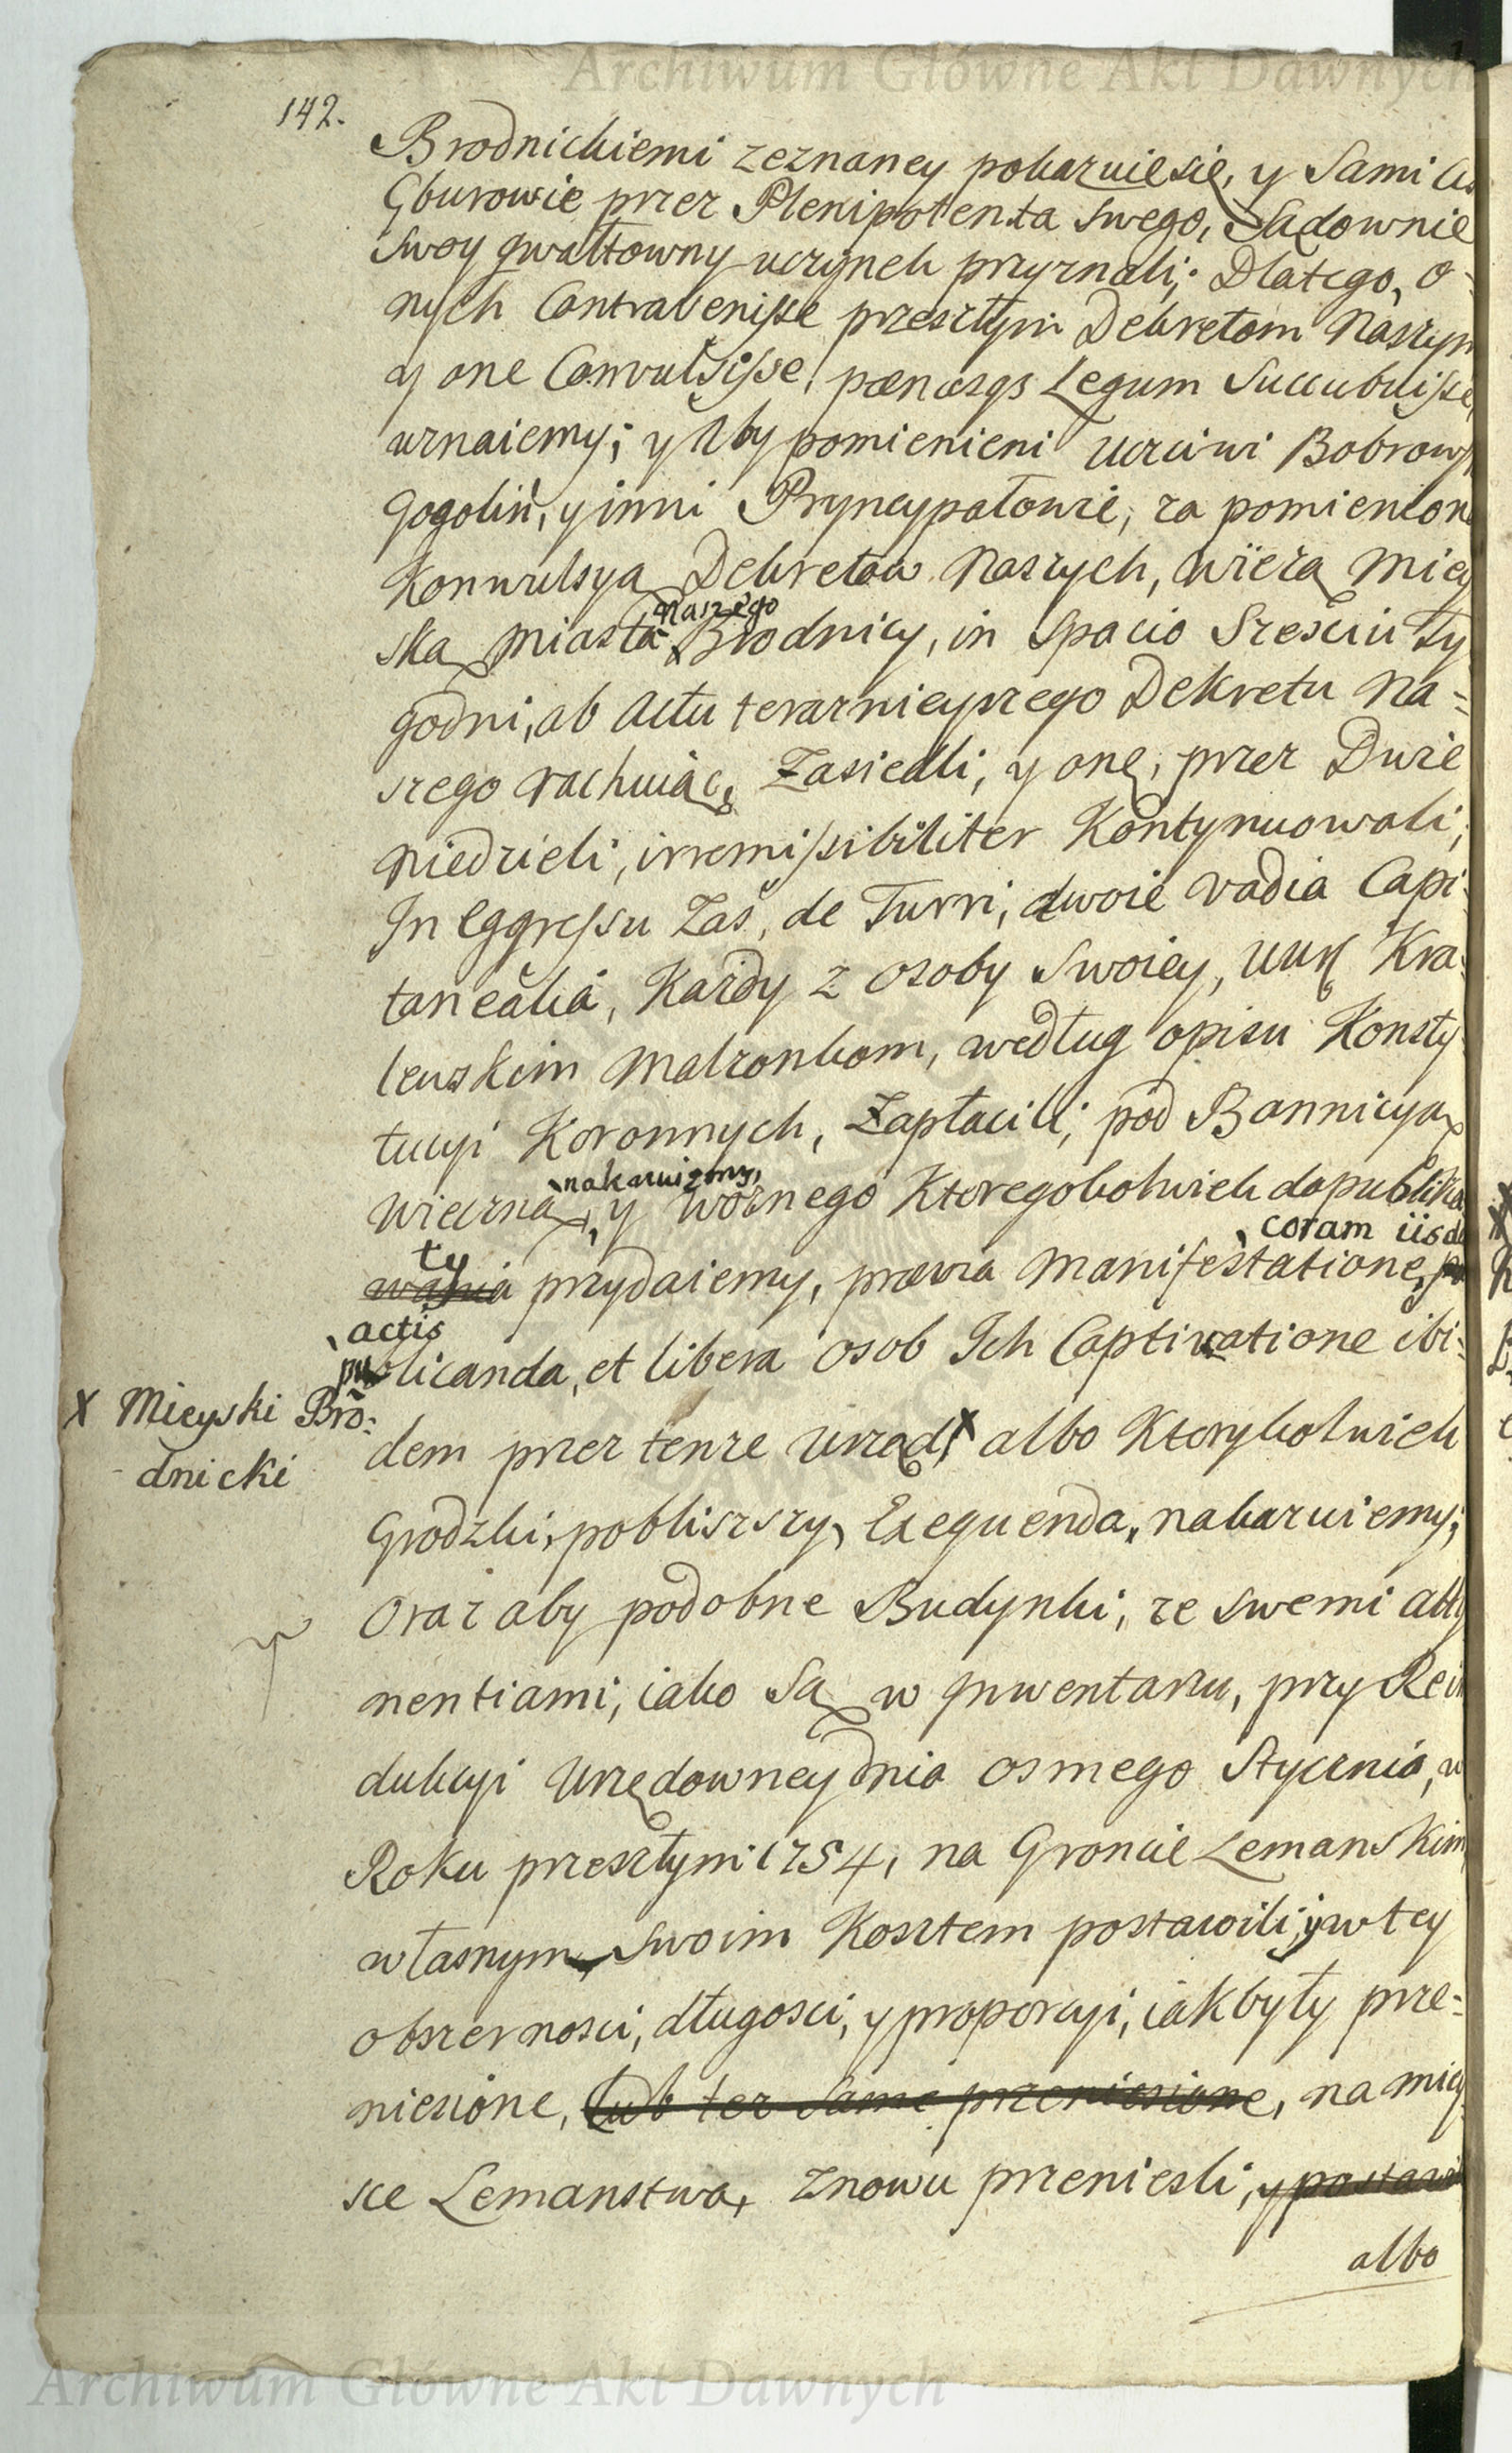 Archiwum Główne Akt Dawnych
142.
Brodnickiemi zeznaney pokazuie się, y Sami Ciż
Gburowie przez Plenipotenta swego, Sądownie
swoy gwałtowny uczynek przyznali; Dlatego, o-
nych Contravenisse przeszłym Dekretom Naszym
y one Convulsisse, pœnasqs Legum Succubuisse,
uznaiemy; y Aby pomienieni Uczciwi Bobrows
Gogolin, y inni Pryncypałowie, za pomienione
Konwulsyą Dekretow Naszych, Wieżą Miey
ską Miasta Naszego Brodnicy, in Spacio Sześciu Ty
godni, ab Actu teraznieyszego Dekretu Na=
szego rachuiąc, Zasiedli, y onę, przez Dwie
niedzieli, irremissibiliter Kontynuowali;
In Eggressu Zaś, de Turri, dwoie vadia Capi=
tanealia, Każdy z osoby Swoiey, UUr Kra=
iewskim Małżonkom, według opisu Konsty
tucyi Koronnych, Zapłacili; pod Bannicyą
wieczną, nakazuiemy, y woznego Ktoregokolwiek do publika
wania ty przydaiemy, prævia Manifestatione, coram iisd
actis
publicanda, et libera osob Ich Captivatione ibi=
X Mieyski Bro=
dnicki
dem przez tenże Urząd, X albo Ktorykolwiek
Grodzki, pobliszszy, Exequenda, nakazuiemy;
Oraz aby podobne Budynki, ze swemi atty
nentiami, iako Są w Inwentarzu, przy Rein
dukcyi Urzędowney dnia osmego Stycznia, w
Roku przeszłym 1754, na Groncie Lemanskim
własnym, swoim Kosztem postawili, y w tey
obszernosci, długosci, y proporcyi, iak były prze=
niesione, Lub też Same przeniesione, na miey
sce Lemanstwa, Znowu przeniesli, y postawi
albo
Archiwum Główne Akt Dawnych